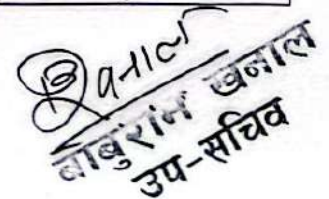 खनाल
बाबुराम खनाल
उप-सचिव